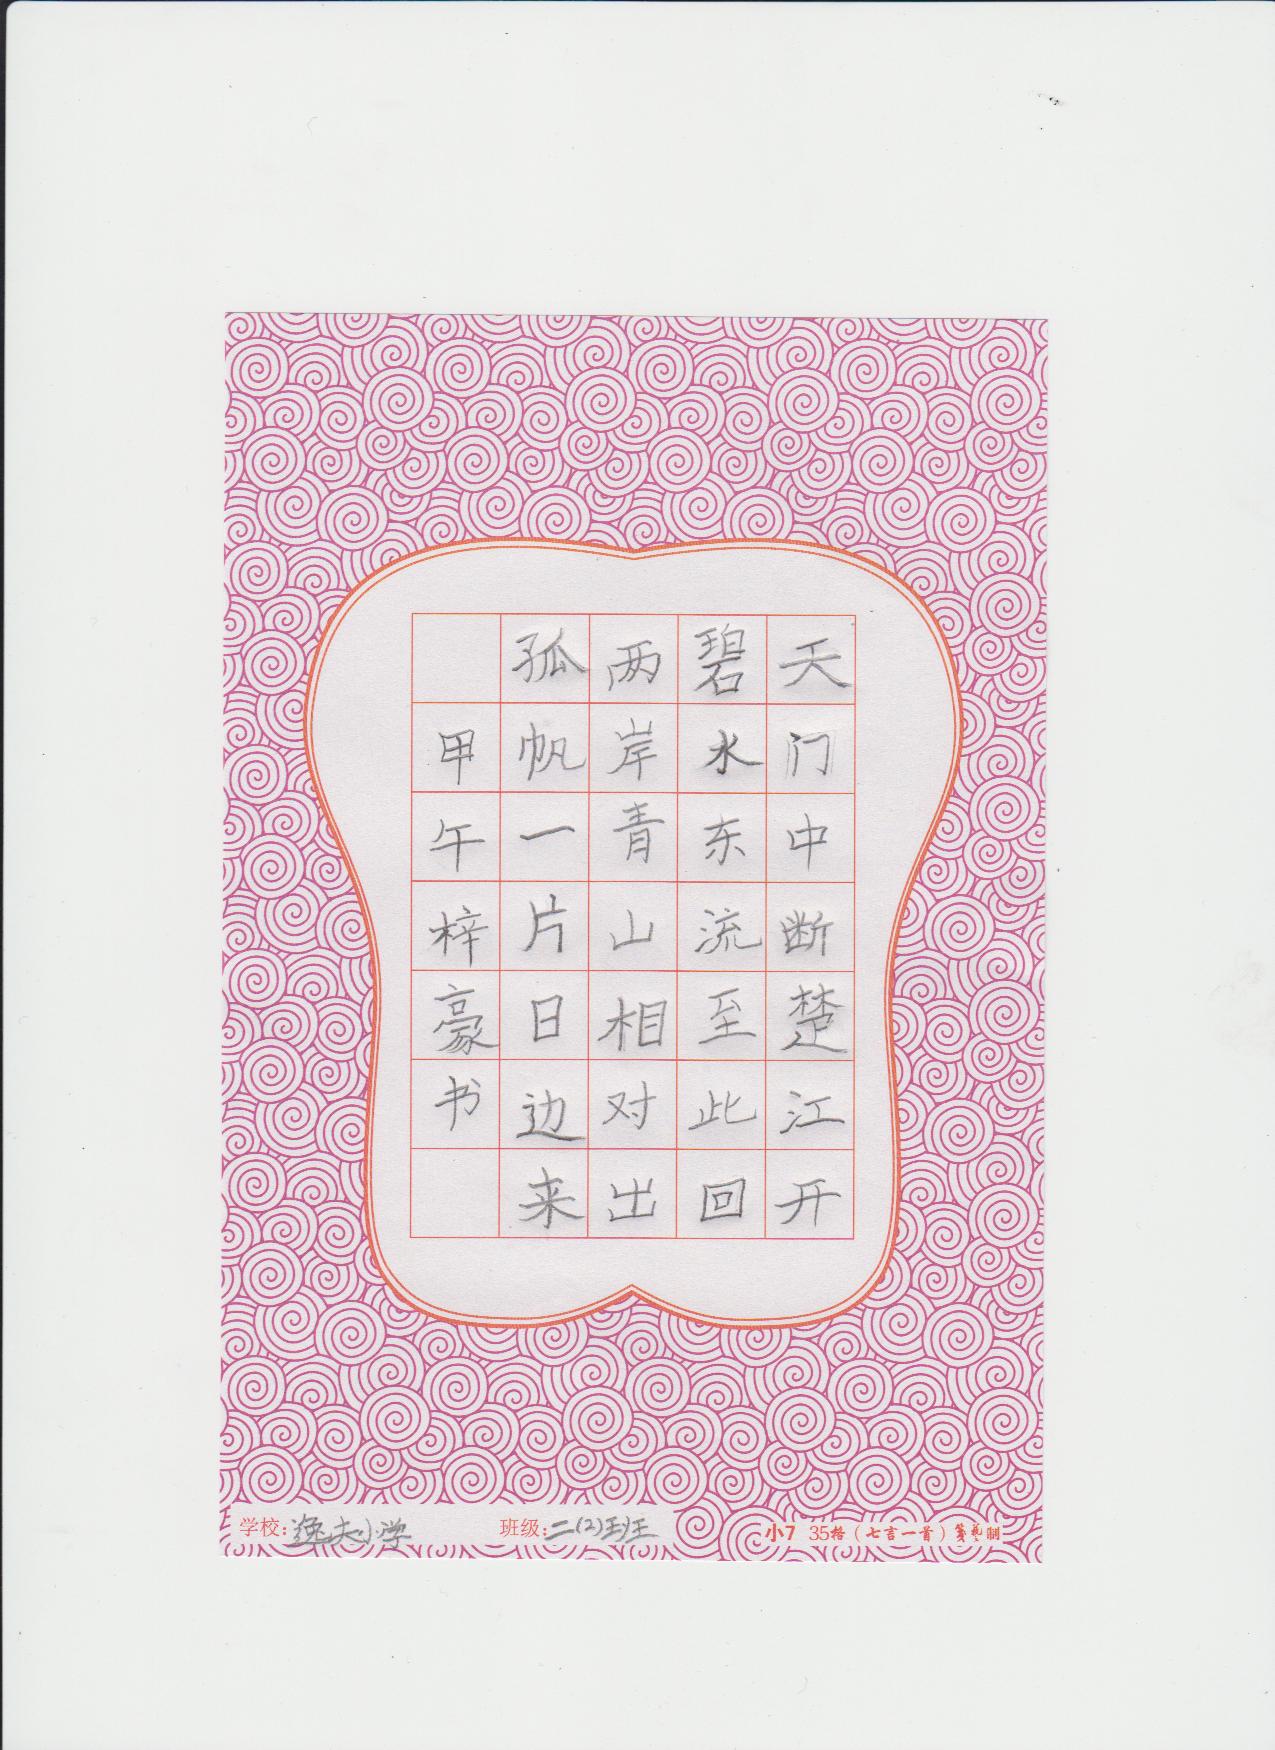 天门中断楚江开
碧水东流至此回
两岸青山相对出
孤帆一片日边来
甲午梓豪书
学校：逸夫小学
班级：二(2)班班
小7 35格（七言一首）笺艺制